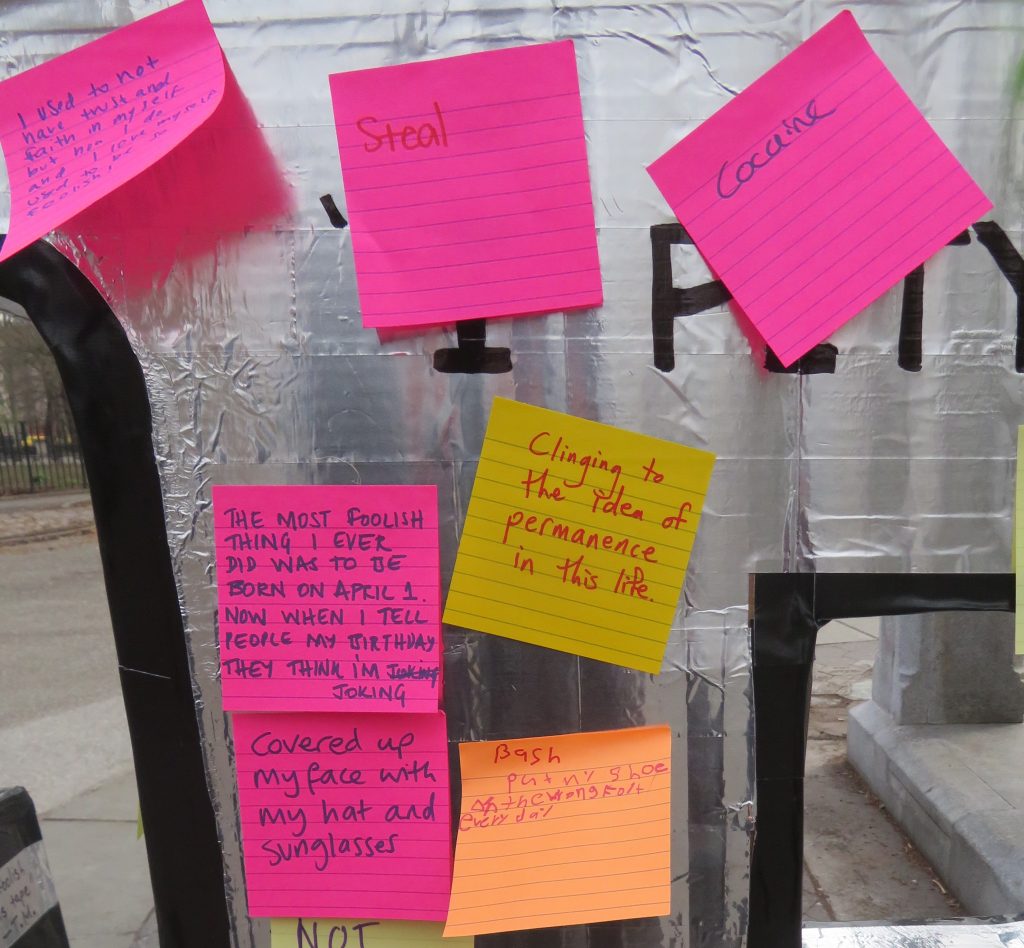 I used to not
have trust and
faith in my self
but now I do
and I love myself
used to be so
foolish!
Steal
Cocaine
I P TY
Clinging to
the idea of
permanence
in this life.
THE MOST FOOLISH
THING I EVER
DID WAS TO BE
BORN ON APRIL 1.
NOW WHEN I TELL
PEOPLE MY BIRTHDAY
THEY THINK I'M JOKING
JOKING
Covered up
my face with
my hat and
sunglasses
Bash
put my shoe
the wrong
every day
NOT
foolish
tape
-T.M.